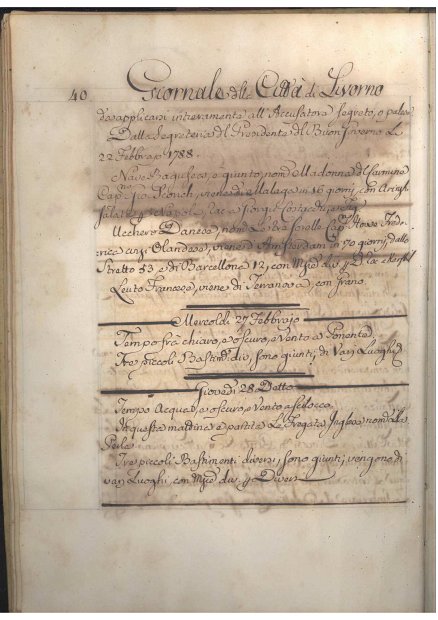 40 Giornale della Città di Livorno
da applicarsi intieramente all' Accusatore segreto, o palese
Dalla Segreteria del Presidente del Buon Governo Li
22 Febbrajo 1788.
Nave Ragusea, è giunto, nomta Madonna del Carmine
Capno Gio: viene di Malaga in 16 giorni, con Aringhe
salate p Napoli,
Ucchero Danese, nomto Le tre Sorelle Capno Howe Fred:
Olandese, viene d' Amsterdam in 70 giorni, dallo
Stretto 53, e di Barcellona 12, con Mzie div. p
Leuto Francese, viene di Terranova, con grano
Mercoldì 27 Febbrajo
Tempo frà chiaro, e oscuro, e Vento a Ponente
Tre piccoli Bastimti div, sono giunti, di Varj Luoghi
Giovedì 28 Detto
Tempo Acqua, e oscuro, e Vento a Scilocco.
Questa mattina è partita La Fregata Inglese nomta La
Perla
Tre piccoli Bastimenti diversi, sono giunti, vengono di
varj Luoghi, con Mzie div. p Diversi